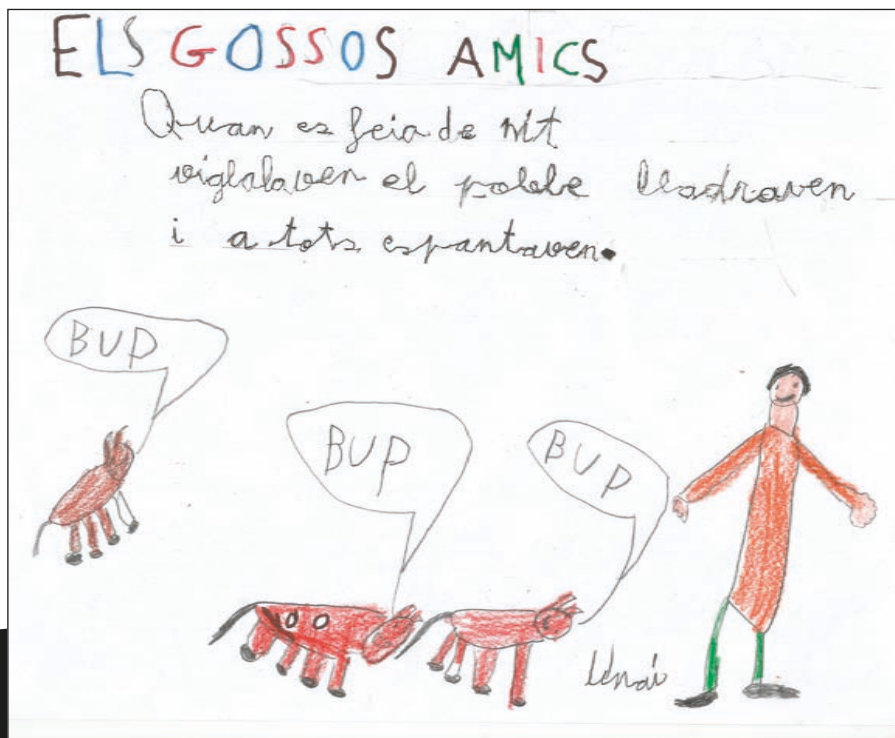 ELS GOSSOS AMICS
Quan es feia de nit
viglalaven el poble lladraven
i a tots espantaven.
BUP
BUP
BUP
Unai